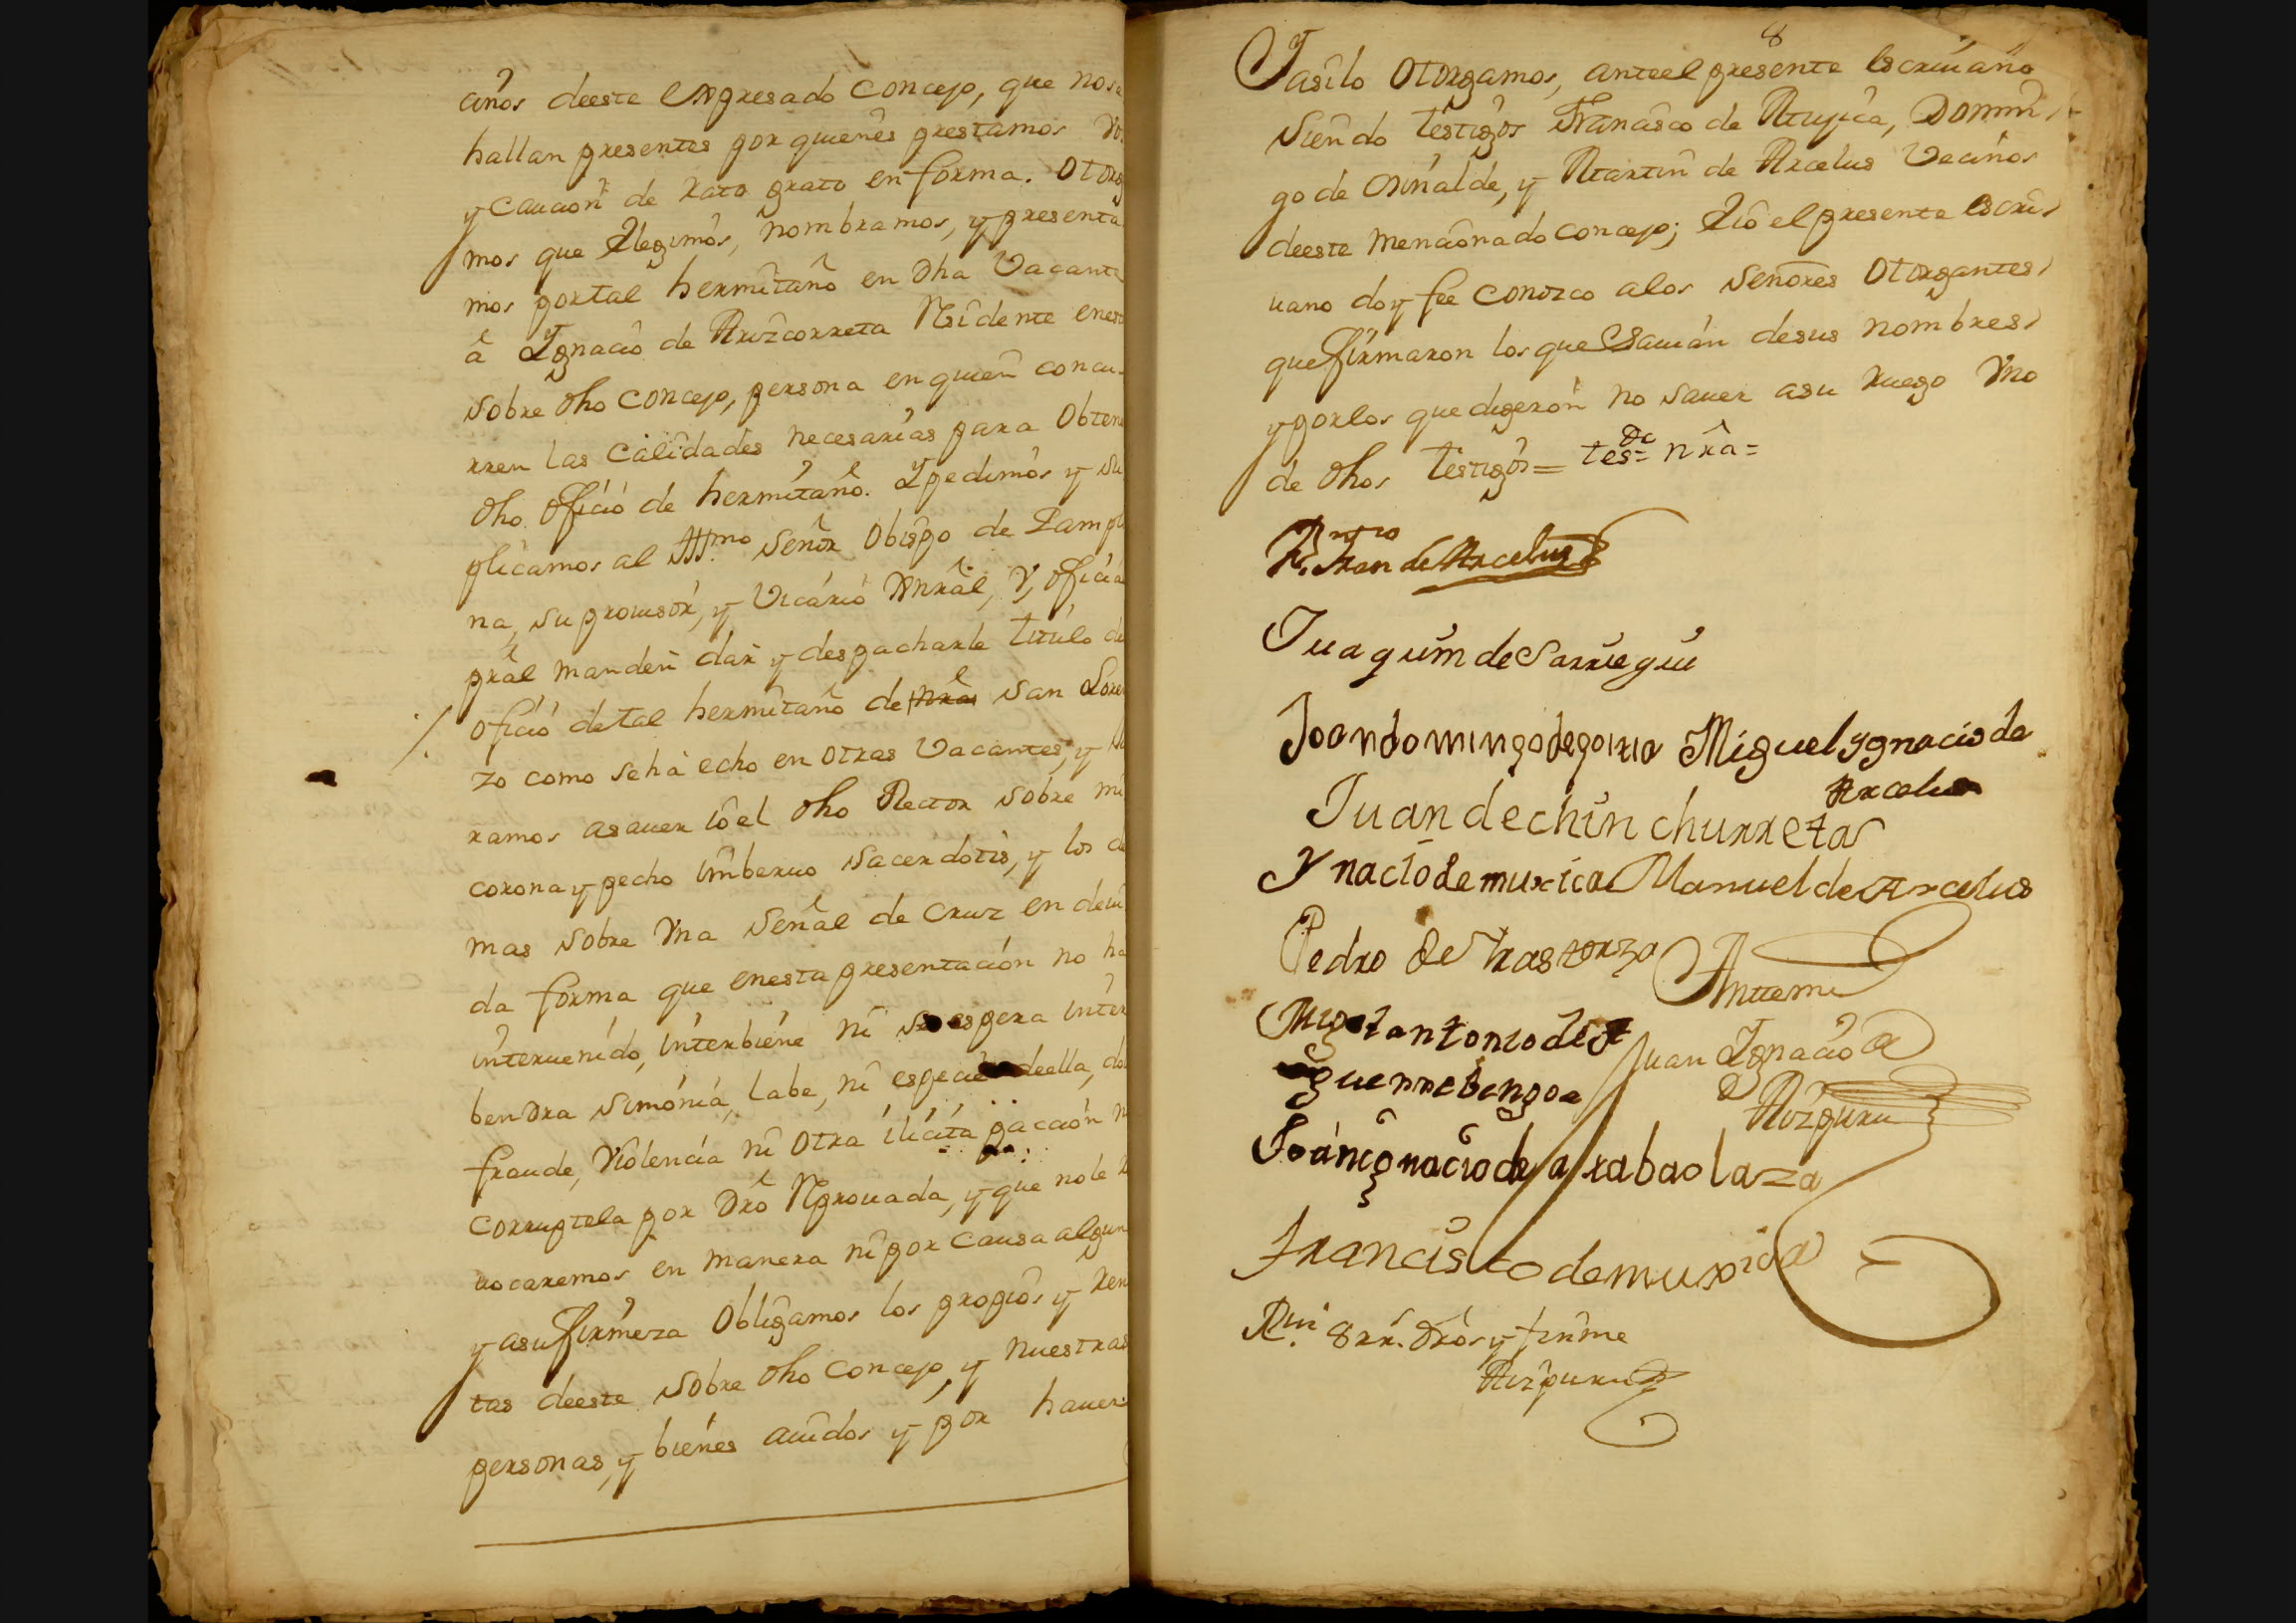 años deeste expresado concejo, que nose
hallan presentes por quienes prestamos vo
y caucion de rato grato en forma. Otorg
mos que Elegimos, nombramos, y presenta
mos por tal hermitaño en dha Vacante
â Ygnacio de Aruzcorreta Residente enest
sobre dho concejo, persona en quien concu
rren las calidades necesarias para Obten
dho. Oficio de hermitaño. Y pedimos y su
plicamos al Illmo. Señor Obispo de Pamplo
na, su prouisor, y Vicario Gnral, y, oficia
pral manden dar y despacharle titulo de
oficio detal hermitaño de nra san Loren
zo como seha echo en otras Vacantes, y Ju
ramos asauer io el dho Rector sobre mi
corona y pecho imberuo sacerdotis, y los de
mas sobre Vna señal de Cruz en deui
da forma que enesta presentacion no ha
interuenido, interbiene ni se espera inter
bendra simonia, labe, ni especie deella, dol
fraude, Violencia ni otra ilicita paccion ni
corruptela por dro Reprouada, y que no le Re
uocaremos en manera ni por causa algun
y asu firmeza Obligamos los propios y Ren
tas deeste sobre dho concejo, y nuestras
personas, y bienes auidos y por hauer:
8
Yasilo Otorgamos, anteel presente escriuano
siendo testigos Francisco de Mujica, Domin
go de Orinalde, y Martin de Arcelus Vecinos
deeste mencionado concejo; Eio el presente escri
uano doy fee conozco alos señores Otorgantes
que firmaron los que sauian desus nombres
y porlos que digeron no sauer asu Ruego Vno
de dhos testigos = tesdo = nra =
de Arcelus
Juaquin de Sarriegui
Joan domingo de goiria Miguel ygnacio de
Arcelus
Juan de chinchurreta
Ynacio de muxica Manuel de Arcelus
Pedro de Urastorza
Antemi
Migel antonio de
guerrebengoa
Juan Ygnacio de
Aizpuru
Joan ignacio de arabaolaza
Francisco de muxica
Rui. 8 rr. dros y firme
Aizpuru